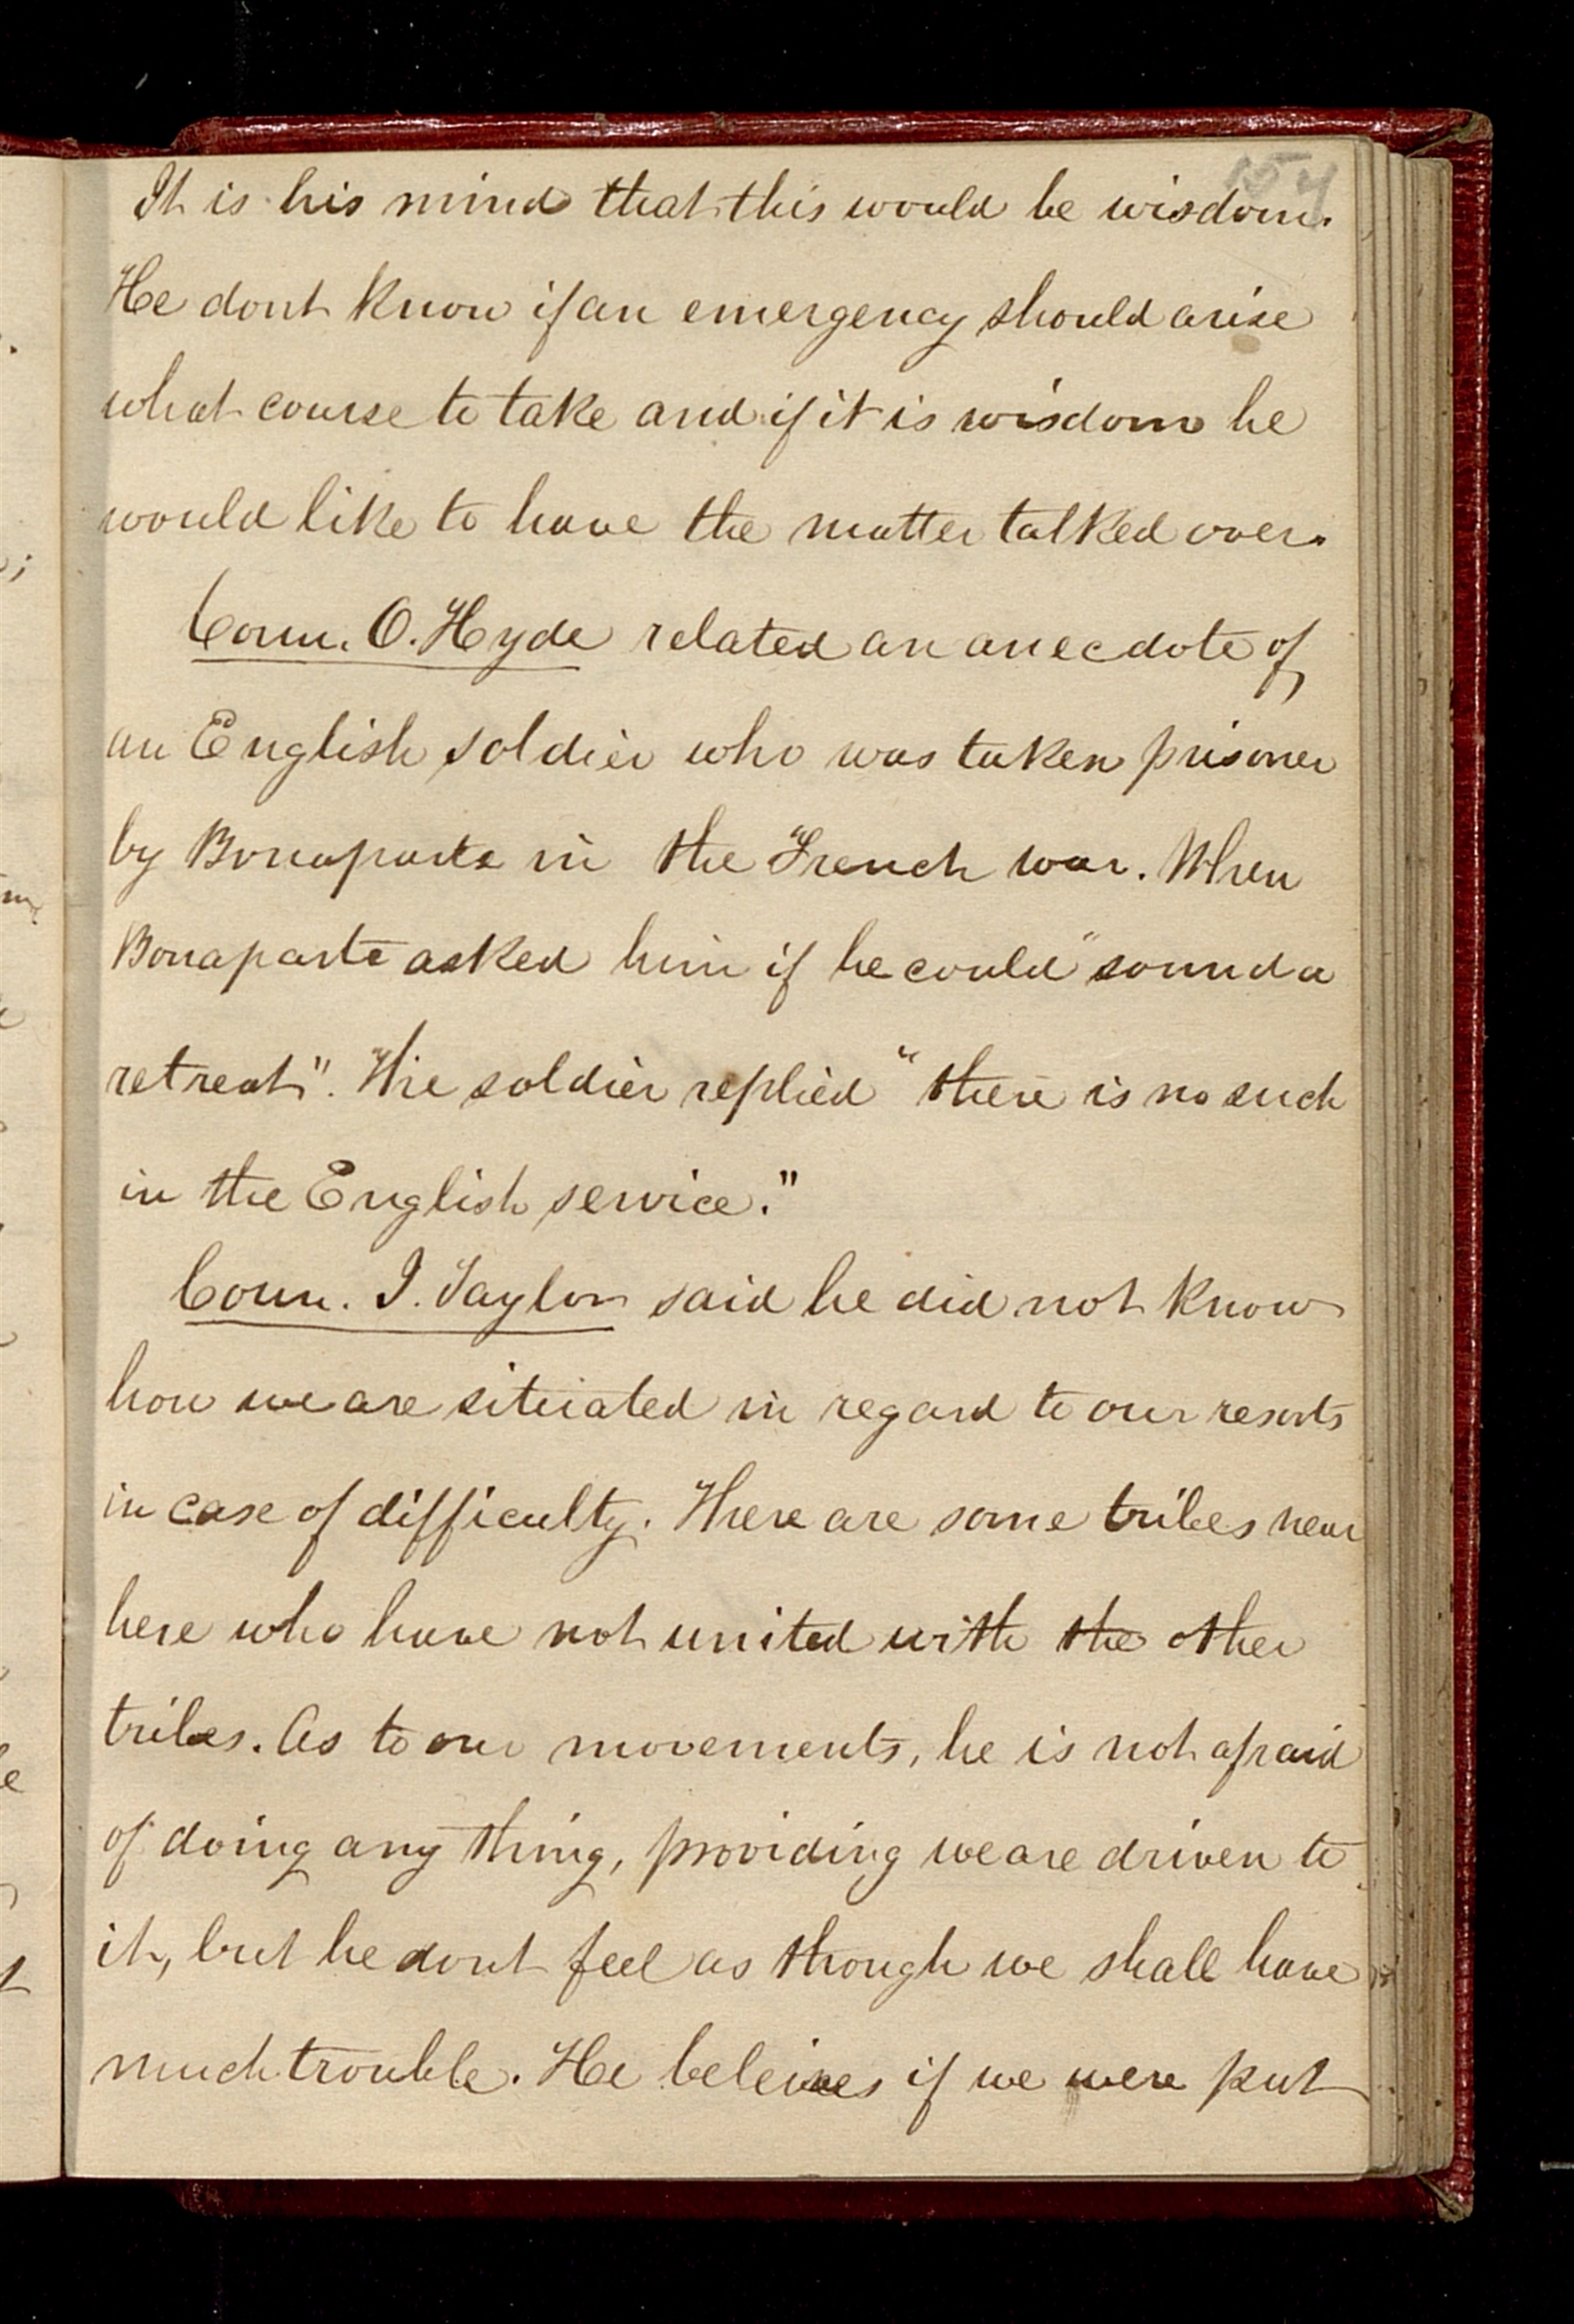 154
It is his mind that this would be wisdom.
He dont know if an emergency should arise
what course to take and if it is wisdom he
would like to have the matter talked over.
Coun. O. Hyde related an anecdote of
an English soldier who was taken prisoner
by Bonaparte in the French war. When
Bonaparte asked him if he could "sound a
retreat". The soldier replied "there is no such
in the English service."
Coun. J. Taylor said he did not know
how we are situated in regard to our resorts
in case of difficulty. There are some tribes near
here who have not united with the other
tribes. As to our movements, he is not afraid
of doing any thing, providing we are driven to
it, but he dont feel as though we shall have
much trouble. He beleives if we were put